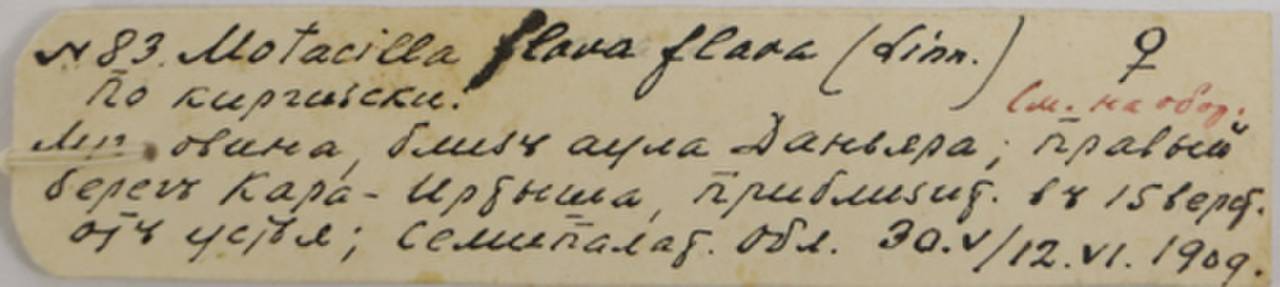 № 83. Motacilla flava flava (Linn.) ♀
По киргизски:
См. на обор.
овина, близъ аула Даньяра; правый
берегъ Кара-Иртыша, приблизит. въ 15 верст.
отъ устья; Семипалат. обл. 30.V/12.VI.1909.